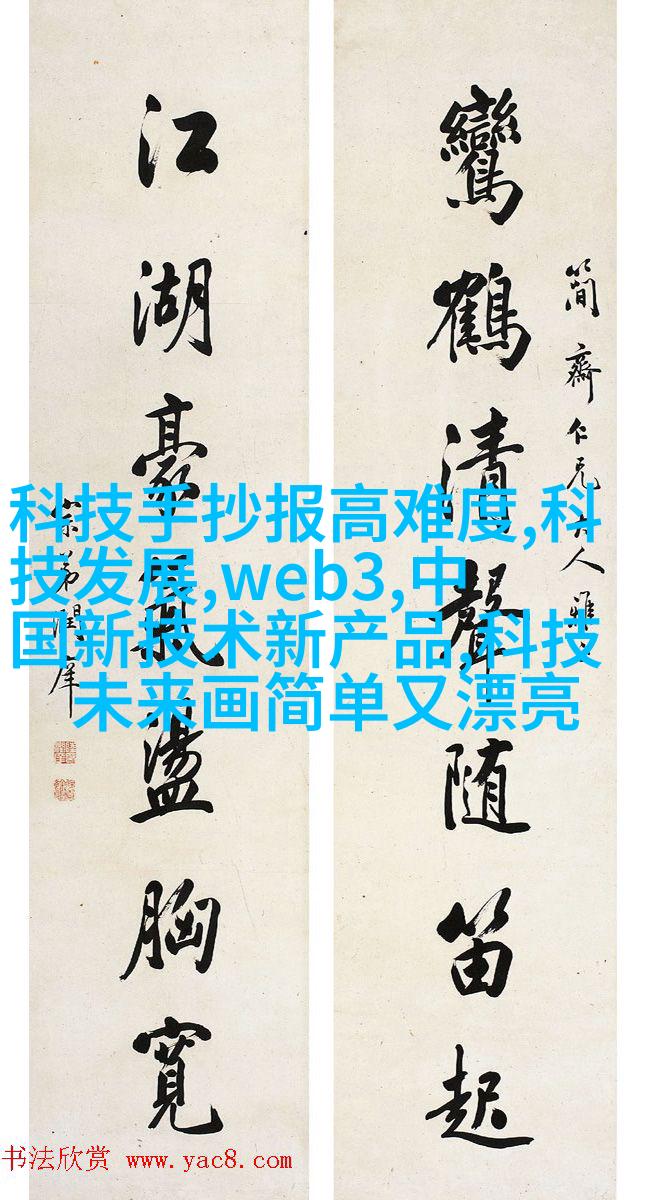 鸞鶴清聲随笛起
簡齋仁兄大人雅
江湖豪氣盪胸寬
宗弟潤庠
科技手抄报高难度,科
技发展,web3,中
国新技术新产品,科技
未来画简单又漂亮
书法欣赏 www.yac8.com